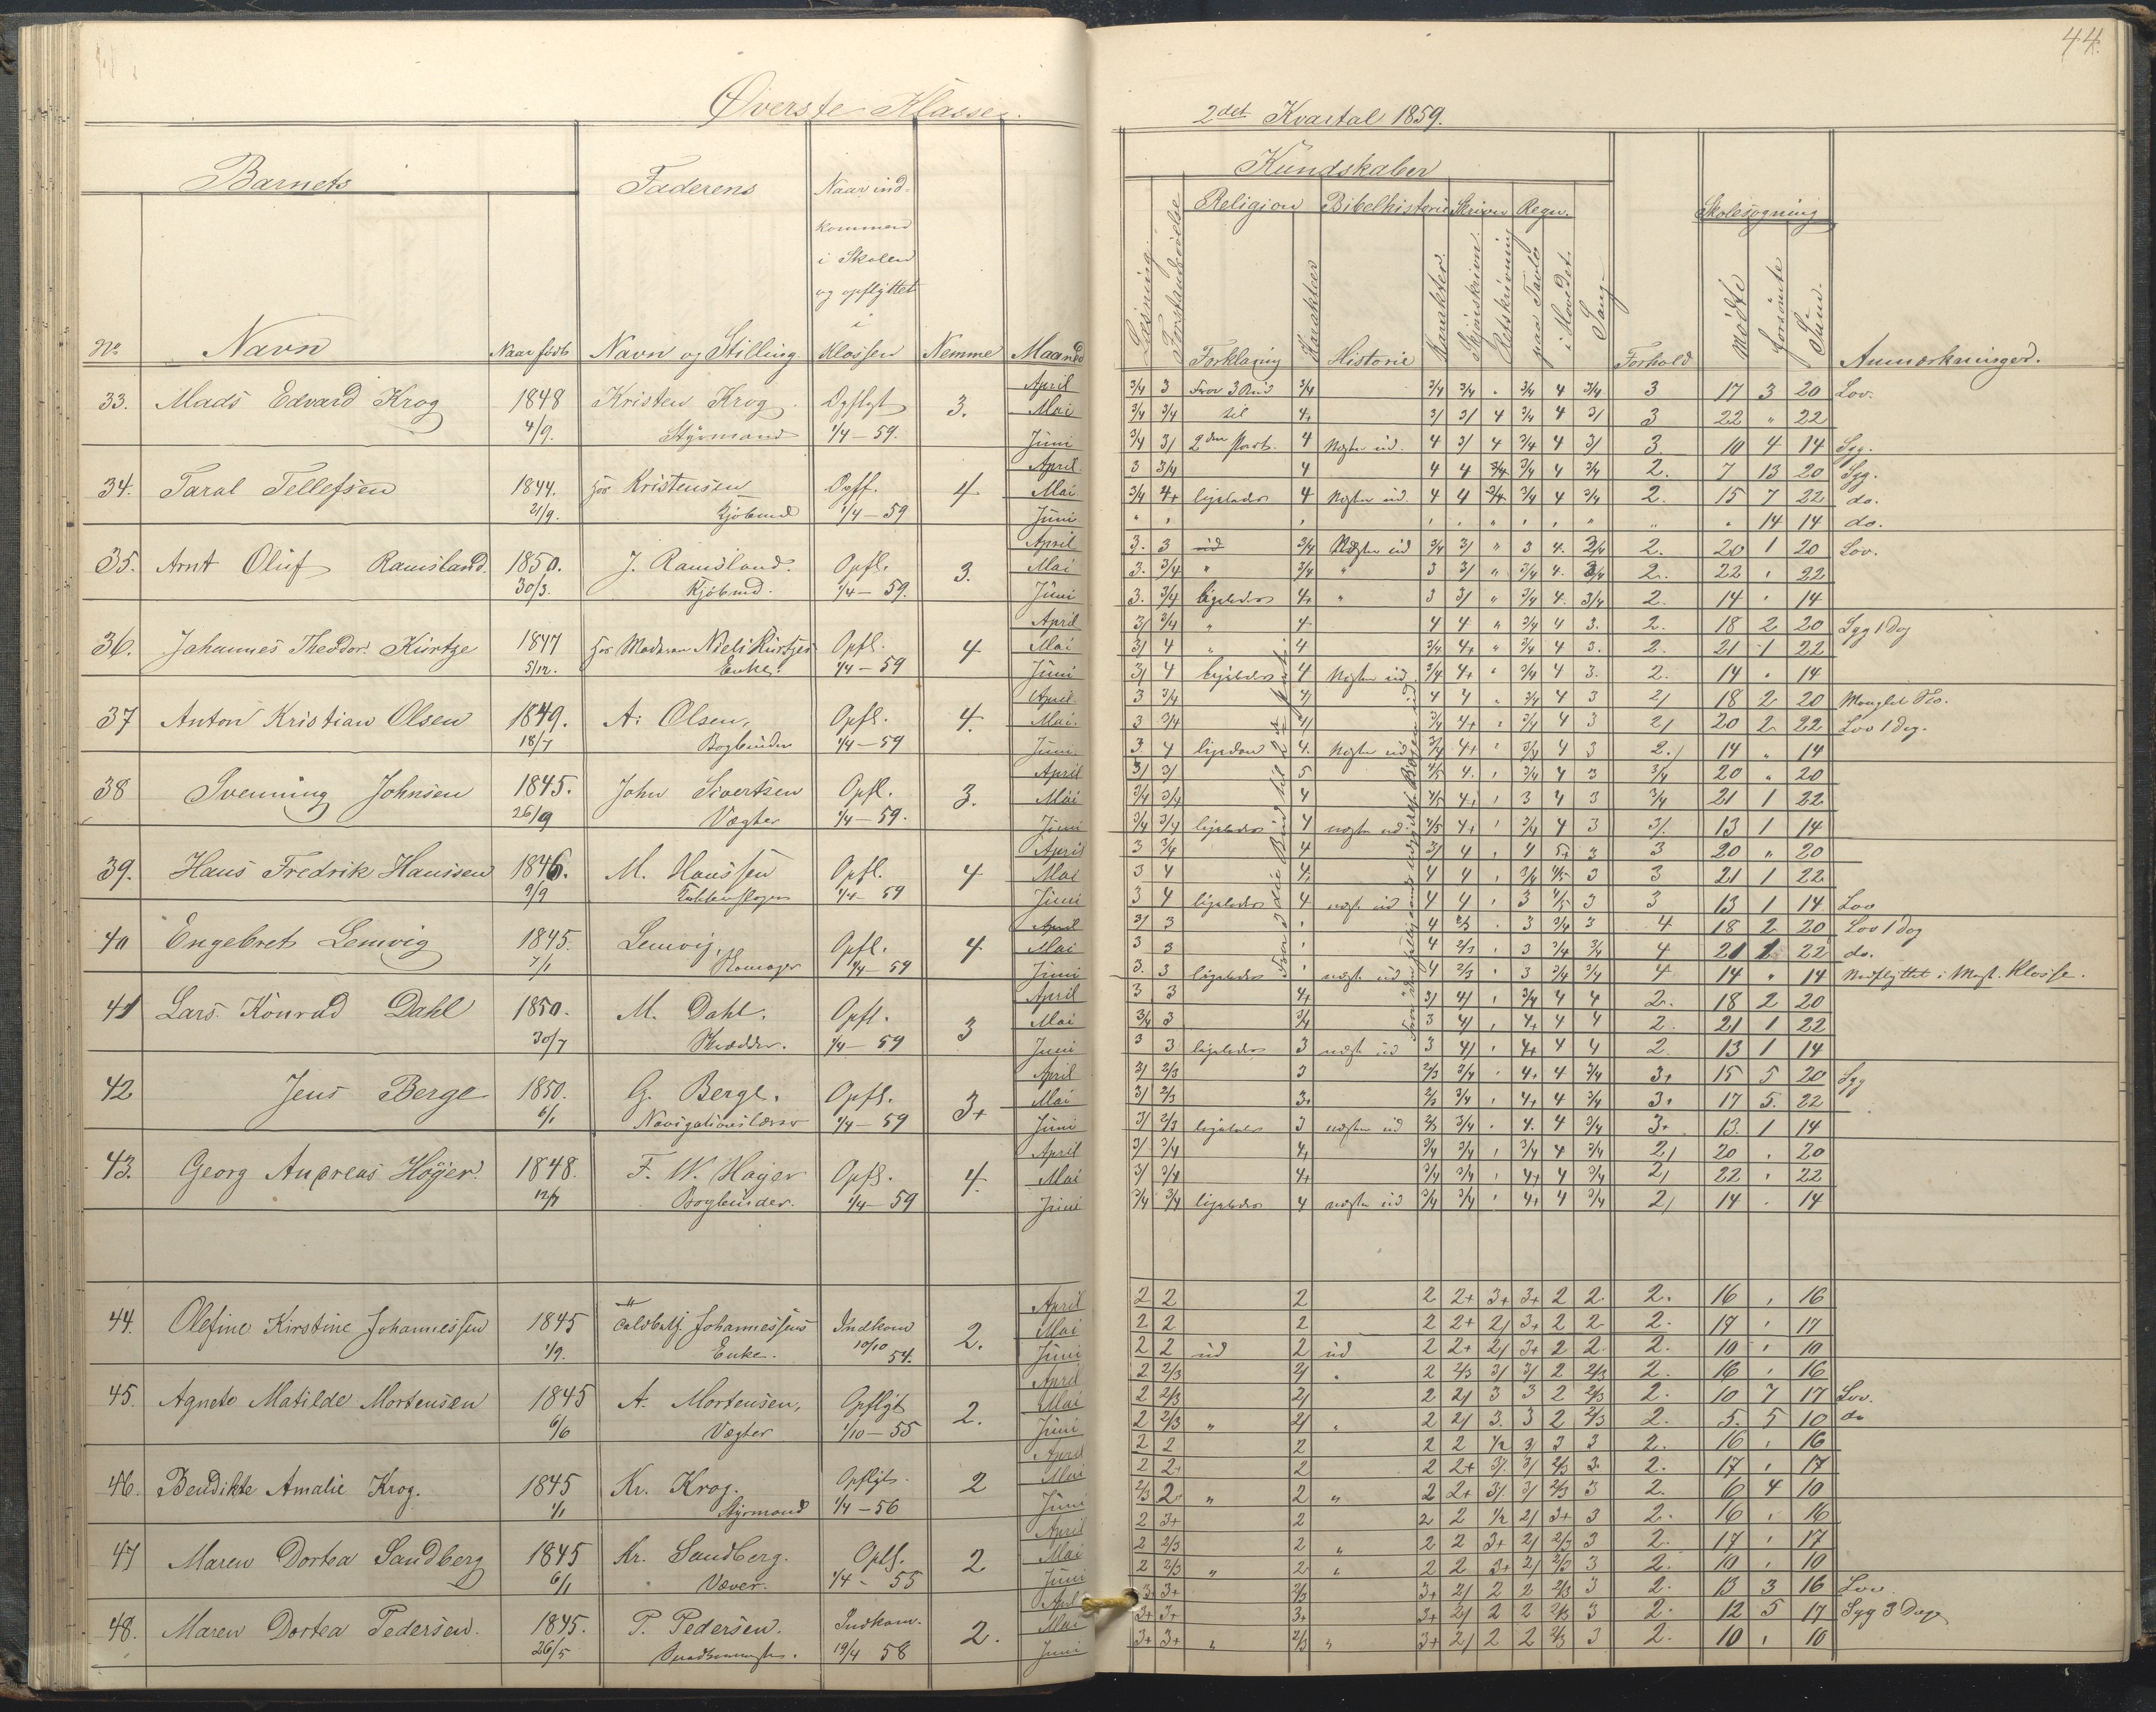 44.
Øverste Klasse.
2det Kvartal 1859.
Barnets
Faderens
Naar ind-
kommen
i Skolen
og opflyttet
i
Klassen
Kundskaber
Religion Bibelhistorie Skrivn Regn.
Skolesøgning
No
Navn
Naar født
Navn og Stilling
Nemme
Maaned
Læsning
Forstandsøvelse
Forklaring
Karakter
Historie
Karakter
Skjønskrivn.
Retskrivning
paa Tavle
i Hovedet
Sang
Forhold
Mødte
forsømte
Sum.
Anmærkninger.
33. Mads Edvard Krog 1848 Kristen Krog Opflyt 3. April 3/4 3 Fra 3/4 3/4 3/4 3/4 4 3/4 3 17 3 20 Lov.
4/9. Styrmand 1/4 – 59. Mai 3/4 3/4 til 4+ 3/ 3/ 4 3/4 4 3/ 3 22 " 22
Juni 3/4 3/ 2den Part. 4 4 3/ 4 3/4 4 3/ 3. 10 4 14 Syg.
34. Taral Tellefsen 1844. Kristensen Opfl. 4 April 3 3/4 4 4 4 3/4 3/4 4 3/4 2. 7 13 20 Syg.
21/9. Kjøbmd 1/4 – 59 Mai 3/4 4+ ligeledes 4 4 4 3/4 3/4 4 3/4 2. 15 7 22 do.
Juni 14 14 do.
35. Arnt Oluf Ramsland. 1850. J. Ramsland. Opfl. 3. April 3. 3 ud 3/4 3/4 3/ " 3 4. 3/4 2. 20 1 20 Lov.
30/3. Kjøbmd. 1/4 – 59. Mai 3. 3/4 " 3/4 " 3 3/ " 3/4 4. 3/4 2. 22 22
Juni 3. 3/4 ligeledes 4+ " 3 3/ " 3/4 4. 3/4 2. 14 14
36. Johannes Theodor Kürtze 1847 Enke. Opfl. 4 April 3/ 3/4 " 4 4 4 " 3/4 4 3. 2. 18 2 20 Syg 1 Dag
5/12. 1/4 – 59 Mai 3/ 4 4 3/4 4+ " 3/4 4 3. 2. 21 1 22
Juni 3/ 4 ligeledes 4 3/4 4+ 3/4 4 3. 2. 14 14
37 Anton Kristian Olsen 1849. A. Olsen, Opfl. 4. April 3 3/4 4/ 4 4 3/4 4 3 2/ 18 2 20
18/7 Bogbinder 1/4 – 59 Mai. 3 3/4 4/ 3/4 4+ 3/4 4 3 2/ 20 2 22 Lov 1 Dag.
Juni 3 4 4. 3/4 4+ 3/4 4 3 2./ 14 " 14
38 Svenning Johnsen 1845. John Sivertsen Opfl. 3. April 3/ 3/ 5 4/5 4. 3/4 4 3 3/4 20 " 20
26/9 Vægter 1/4 – 59. Mai 3/4 3/4 4 4/5 4+ 3 4 3 3/4 21 1 22
Juni 3/4 3/4 ligeledes 4 4/5 4+ 3/4 4 3 3/. 13 1 14
39. Hans Fredrik Hanssen 1846. M. Hanssen Opfl. 4 April 3 3/4 4 3/ 4 4 5+ 3 3 20 " 20
9/9 1/4 – 59 Mai 3 4 4/ 4 4 3/4 4/5 3 3 21 1 22
Juni 3 4 ligeledes 4 4 4 3 4/5 3 3 13 1 14 Lov
40 Engebret Lemvig 1845. Lemvig, Opfl. 4 April 3/ 3 4 2/3 3 3/4 3 4 18 2 20 Lov 1 Dag
7/1 1/4 – 59 Mai 3 3 4 2/3 3 3/4 3/4 4 21 1 22 do.
Juni 3. 3 ligeledes 4 2/3 3 3/4 3/4 4 14 " 14 Nedflyttet i Klasse.
41 Lars Konrad Dahl 1850. M. Dahl. Opfl. 3 April 3 3 4+ 3/ 4/ 3/4 4 4 2. 18 2 20
30/7 Skrædder. 1/4 – 59 Mai 3/4 3 3/4 3 4/ 4+ 4 4 2. 21 1 22
Juni 3 3 ligeledes 3 3 4/ 4+ 4 4 2. 13 1 14
42 Jens Berge 1850. G. Berge. Opfl. 3+ April 3/ 2/3 3 2/3 3/4 4+ 4 3/4 3+ 15 5 20 Syg
6/1 Navigationslærer 1/4 – 59 Mai 3/ 2/3 3+ 2/3 3/4 4+ 4 3/4 3+ 17 5. 22
Juni 3/ 2/3 ligeledes 3 2/3 3/4 4. 4 3/4 3+ 13. 1 14
43. Georg Andreas Høyer. 1848. F. W. Høyer Opfl. 4. April 3/ 3/4 4+ 3/4 3/4 3/4 4 3/4 2/ 20 20
12/7 Bogbinder. 1/4 – 59 Mai 3/ 3/4 4+ 3/4 3/4 4+ 4 3/4 2/ 22 22
Juni 3/4 3/4 ligeledes 4 3/4 3/4 4+ 4 3/4 2/ 14 14
44. Olefine Kirstine Johannessen 1845 Johannessens Indkom 2. April 2 2 2 2 2+ 3+ 3+ 2 2. 2. 16 16
1/9. Enke. 10/10 54. Mai 2 2 2 2 2+ 2/ 3+ 2 2 2. 17 17
Juni 2 2 ud 2 ud 2 2+ 2/ 3+ 2 2. 2. 10 10
45. Agnete Matilde Mortensen 1845 A. Mortensen, Opflyt 2. April 2 2/3 2/ 2 2/3 3/ 3/ 2 2/3 2. 16 16
6/6 Vægter 1/10 – 55 Mai 2 2/3 2/ 2 2/ 3 3 2 2/3 2. 10 7 17 Lov.
Juni 2 2/3 " 2/ 2 2/ 3. 3 2 2/3 2. 5. 5 10 do
46. Bendikte Amalie Krog. 1845 Kr. Krog. Opflyt. 2 April 2 2 2 2 2 1/2 3/ 3 3 2. 16 16
1/1 Styrmand 1/4 – 56 Mai 2 2+ 2 2 2+ 3/. 3/ 2/3 3. 2. 17 17
Juni 2/3 2. " 2 " 2 2+ 3/. 3/ 2/3 3 2. 6 4 10
47 Maren Dortea Sandberg 1845 Kr. Sandberg. Opfl. 2 April 2 3+ 2 2 2 1/2 2/ 3+ 3 2. 16 16
6/1 Væver. 1/4 – 55 Mai 2 2/3 2 " 2 2 3+ 2/ 2/3 3 2. 17 17
Juni 2 2/3 " 2 2 2 3+ 2/ 2/3 3 2. 10 10
48. Maren Dortea Pedersen. 1845. P. Pedersen. Indkom. 2. April 3+ 3+ 2/3 3+ 2/ 2 2 2/3 3 2. 13 3 16 Lov
26/5 19/4 58 Mai 3+ 3+ 3+ 3+ 2/ 2 2 2/3 3 2. 12 5 17 Syg 3 Dage
Juni 3+ 3+ " 2/3 " 3+ 2/ 2 2 2/3 3 2. 10 10